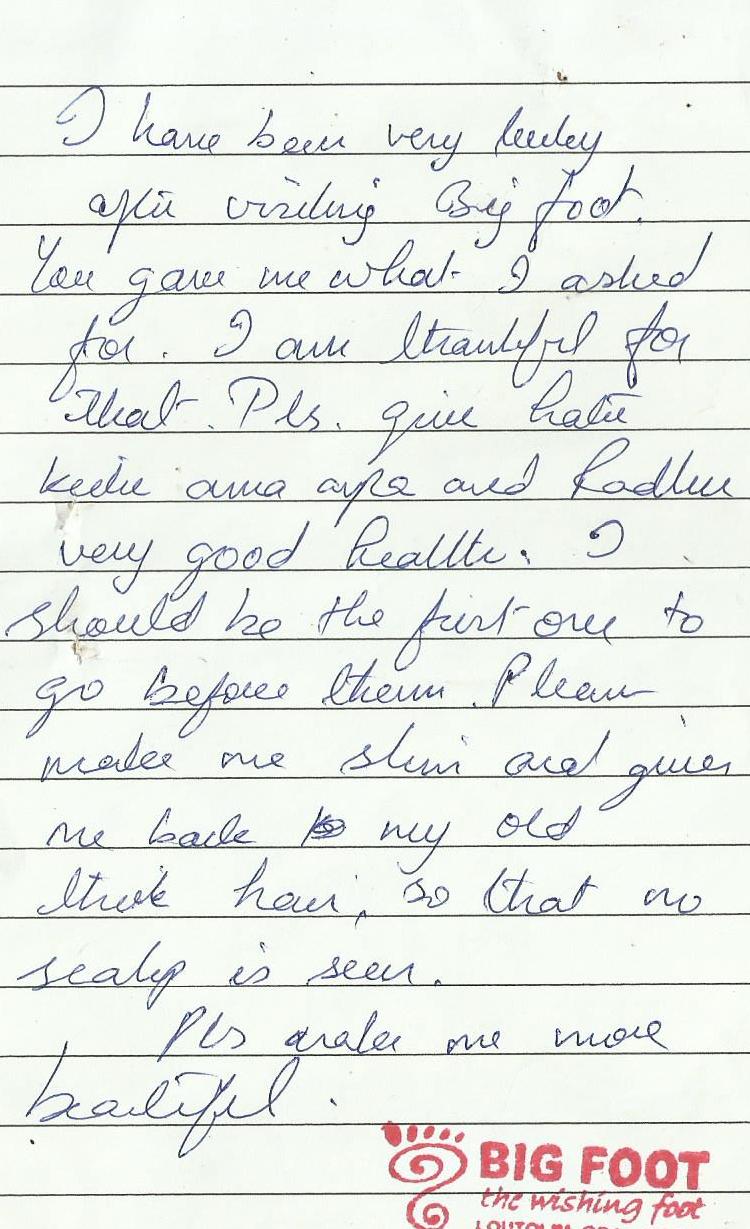 I have been very lucky
after visiting Big foot.
You gave me what I asked
for. I am thankful for
that. Pls. give
ama apa and
very good health. I
should be the first one to
go before them. Please
make me slim and give
me back my old
thick hair, so that no
scalp is seen.
Pls make me more
beautiful.
BIG FOOT
the wishing foot